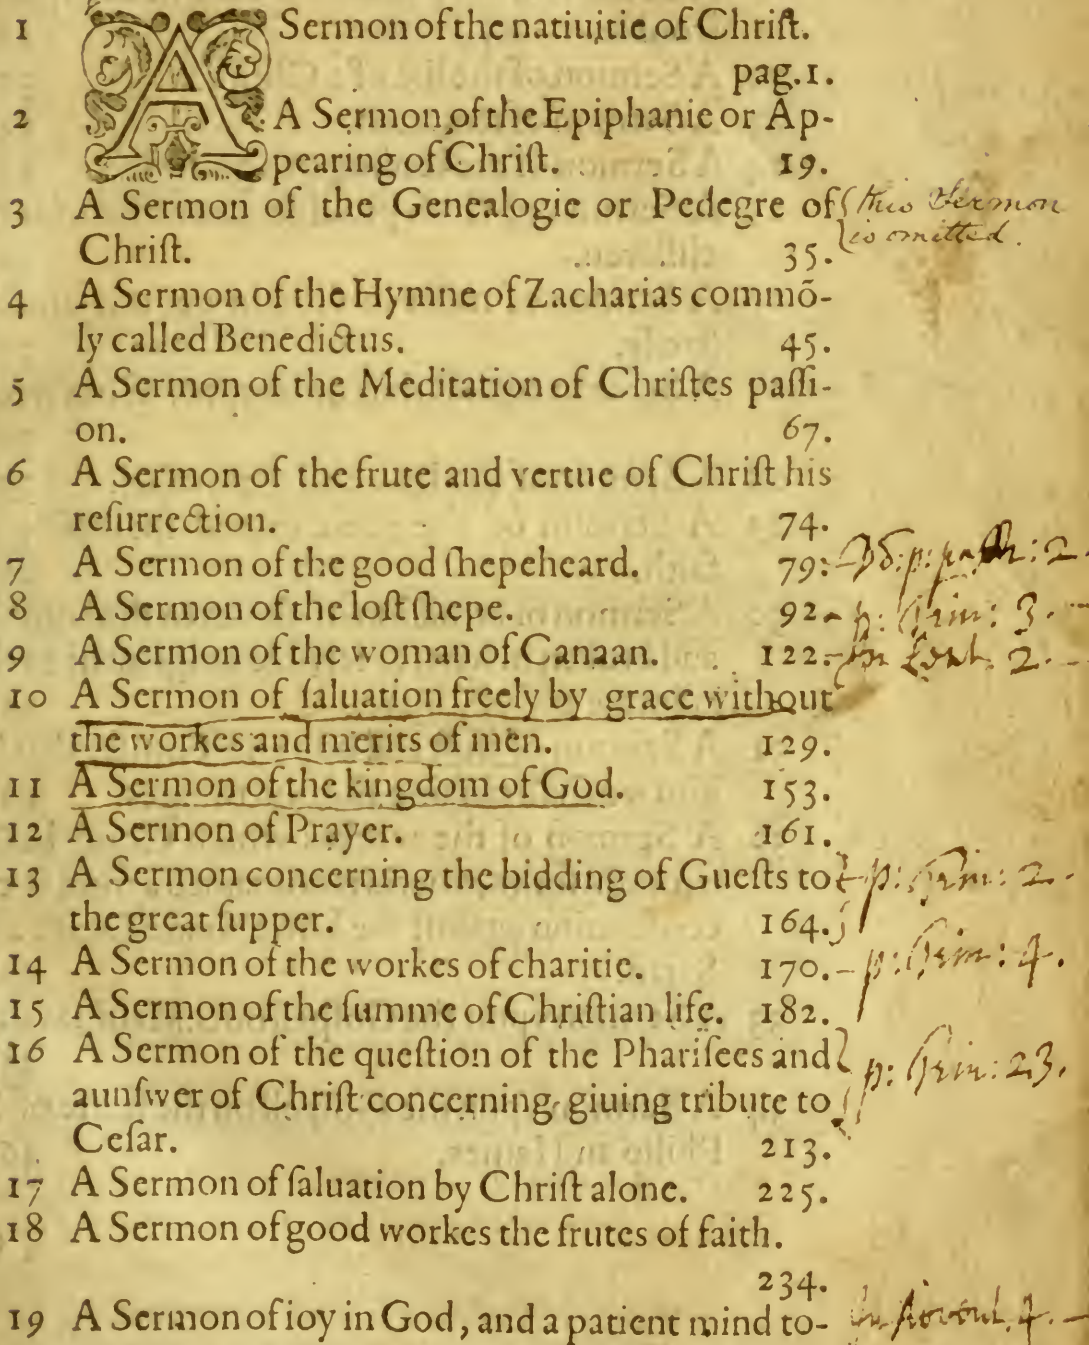 1 A Sermon of the natiuitie of Chriſt.
pag. 1.
2 A Sermon of the Epiphanie or Ap-
pearing of Chriſt. 19.
3 A Sermon of the Genealogie or Pedegre of this Sermon
Chriſt. 35. is omitted.
4 A Sermon of the Hymne of Zacharias commō-
ly called Benedictus. 45.
5 A Sermon of the Meditation of Chriſtes paſſi-
on. 67.
6 A Sermon of the frute and vertue of Chriſt his
reſurrection. 74.
7 A Sermon of the good ſhepeheard. 79:
8 A Sermon of the loſt ſhepe. 92 p: Trin: 3.
9 A Sermon of the woman of Canaan. 122. 2.
10 A Sermon of ſaluation freely by grace without
the workes and merits of men. 129.
11 A Sermon of the kingdom of God. 153.
12 A Sermon of Prayer. 161.
13 A Sermon concerning the bidding of Gueſts to p: Trin: 2.
the great ſupper. 164.
14 A Sermon of the workes of charitie. 170. p: Trin: 4.
15 A Sermon of the ſumme of Chriſtian life. 182.
16 A Sermon of the queſtion of the Phariſees and p: Trin: 23.
aunſwer of Chriſt concerning giuing tribute to
Ceſar. 213.
17 A Sermon of ſaluation by Chriſt alone. 225.
18 A Sermon of good workes the frutes of faith.
234.
19 A Sermon of ioy in God, and a patient mind to- 4.